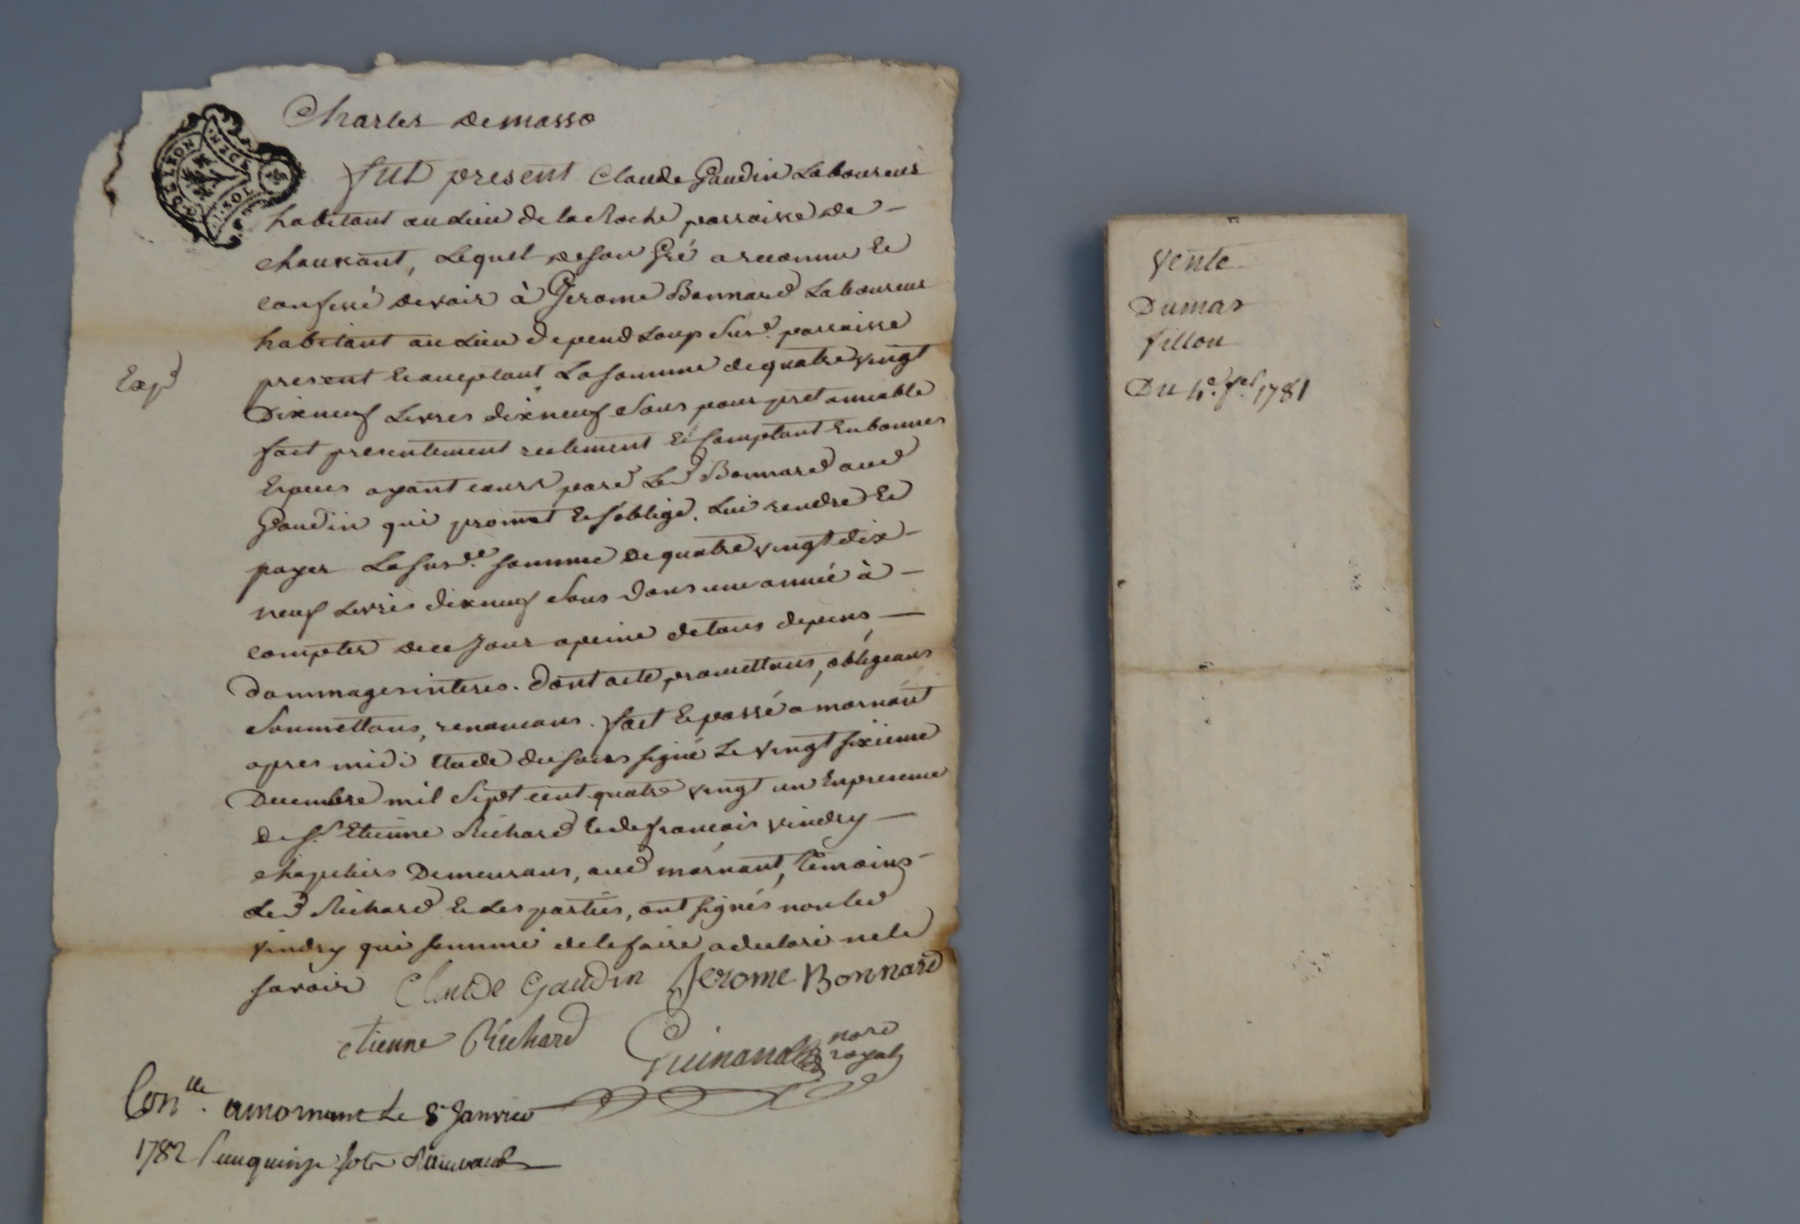 Charles Demasso
G. DE LYON
fut present Claude Gaudin Laboureur
habitant au Lieu de la Roche parroisse de
chaussant, Lequel de son Gré a reconnu Et
confessé devoir à Jerome Bonnard Laboureur
habitant au Lieu de pend Loup Susd. parroisse
present Et aceptant La somme de quatre vingt
Dixneuf Livres dixneuf Sous pour pret amiable
fait presentement reelement Et Comptant En bonnes
Especes ayant cours par Led Bonnard aud
Gaudin qui promet Et s'oblige. Lui rendre Et
payer La susde. somme de quatre vingt dix
neuf Livres dixneuf Sous dans une année à
compter de ce Jour a peine de tous depens
dommages interes. dont acte promettans, obligeans
Soumettans, renoncans. fait Et passé a mornant
apres midi Etude du sousigné Le vingt sixieme
Decembre mil Sept cent quatre vingt un En presence
de Sr. Etienne Richard Et de francois vindry
chapeliers Demeurans, aud mornant, Temoins
Led Richard Et Les parties, ont signés non Led
vindry qui sommé de le faire a declaré ne le
savoir Claude Gaudin Jerome Bonnard
etienne Richard Guinand nore
royal
Conlle. a mornant Le 8 Janvier
1782 quinze sols
Vente
Dumas
fillon
Du 4e. 1781